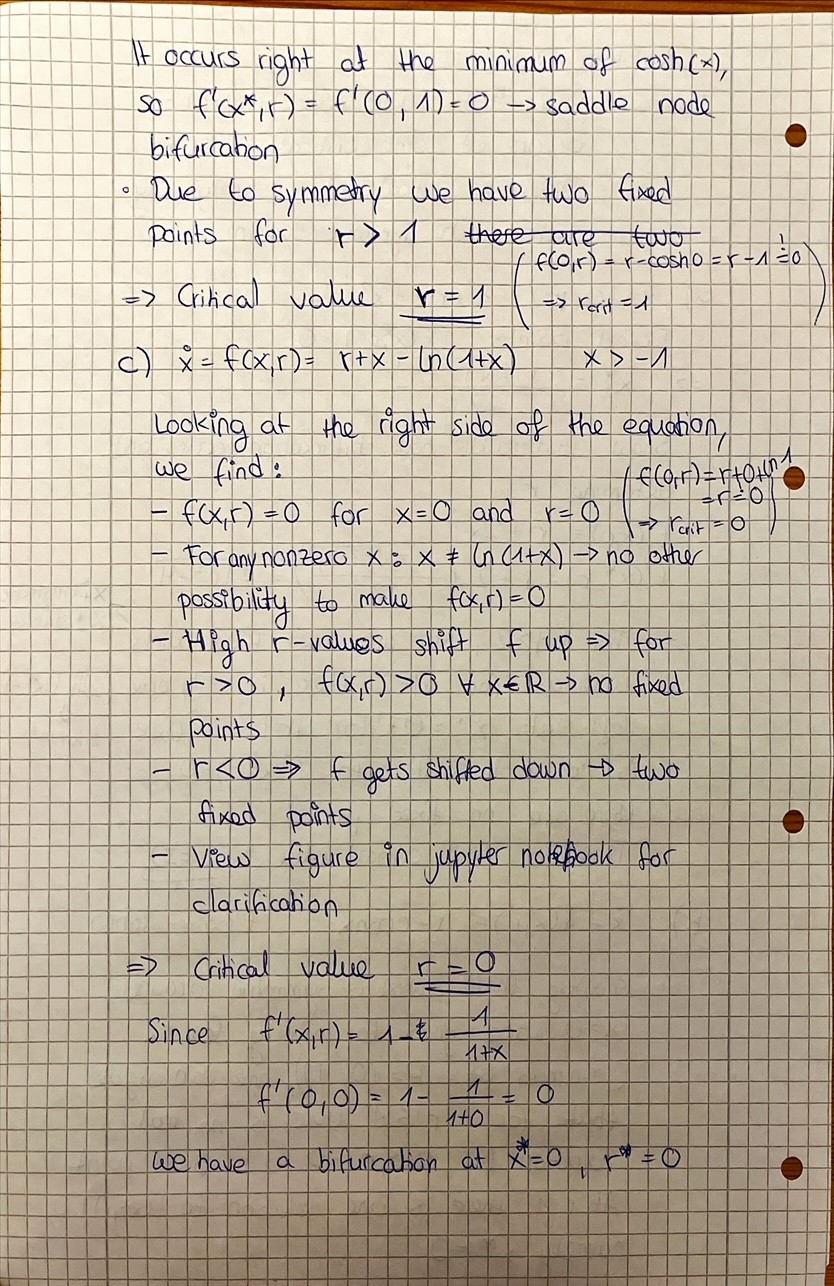 It occurs right at the minimum of cosh(x),
so f'(x*,r) = f'(0,1) = 0 → saddle node
bifurcation
• Due to symmetry we have two fixed
points for r > 1 ~~there are two~~
(f(0,r) = r-cosh0 = r-1 != 0
=> Critical value r = 1
=> r_crit = 1)
c) ẋ = f(x,r) = r+x - ln(1+x) x > -1
Looking at the right side of the equation,
we find:
(f(0,r) = r+0+ln1
= r != 0
- f(x,r) = 0 for x=0 and r=0
=> r_crit = 0)
- For any nonzero x : x ≠ ln(1+x) → no other
possibility to make f(x,r) = 0
- High r-values shift f up => for
r > 0, f(x,r) > 0 ∀ x∈ℝ → no fixed
points
- r < 0 => f gets shifted down → two
fixed points
- View figure in jupyter notebook for
clarification
=> Critical value r = 0
Since f'(x,r) = 1 - 1/(1+x)
f'(0,0) = 1 - 1/(1+0) = 0
we have a bifurcation at x*=0, r* = 0